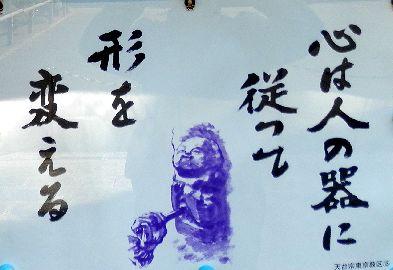 心は人の器に
従って
形を
変える
天台宗東京教区⑮